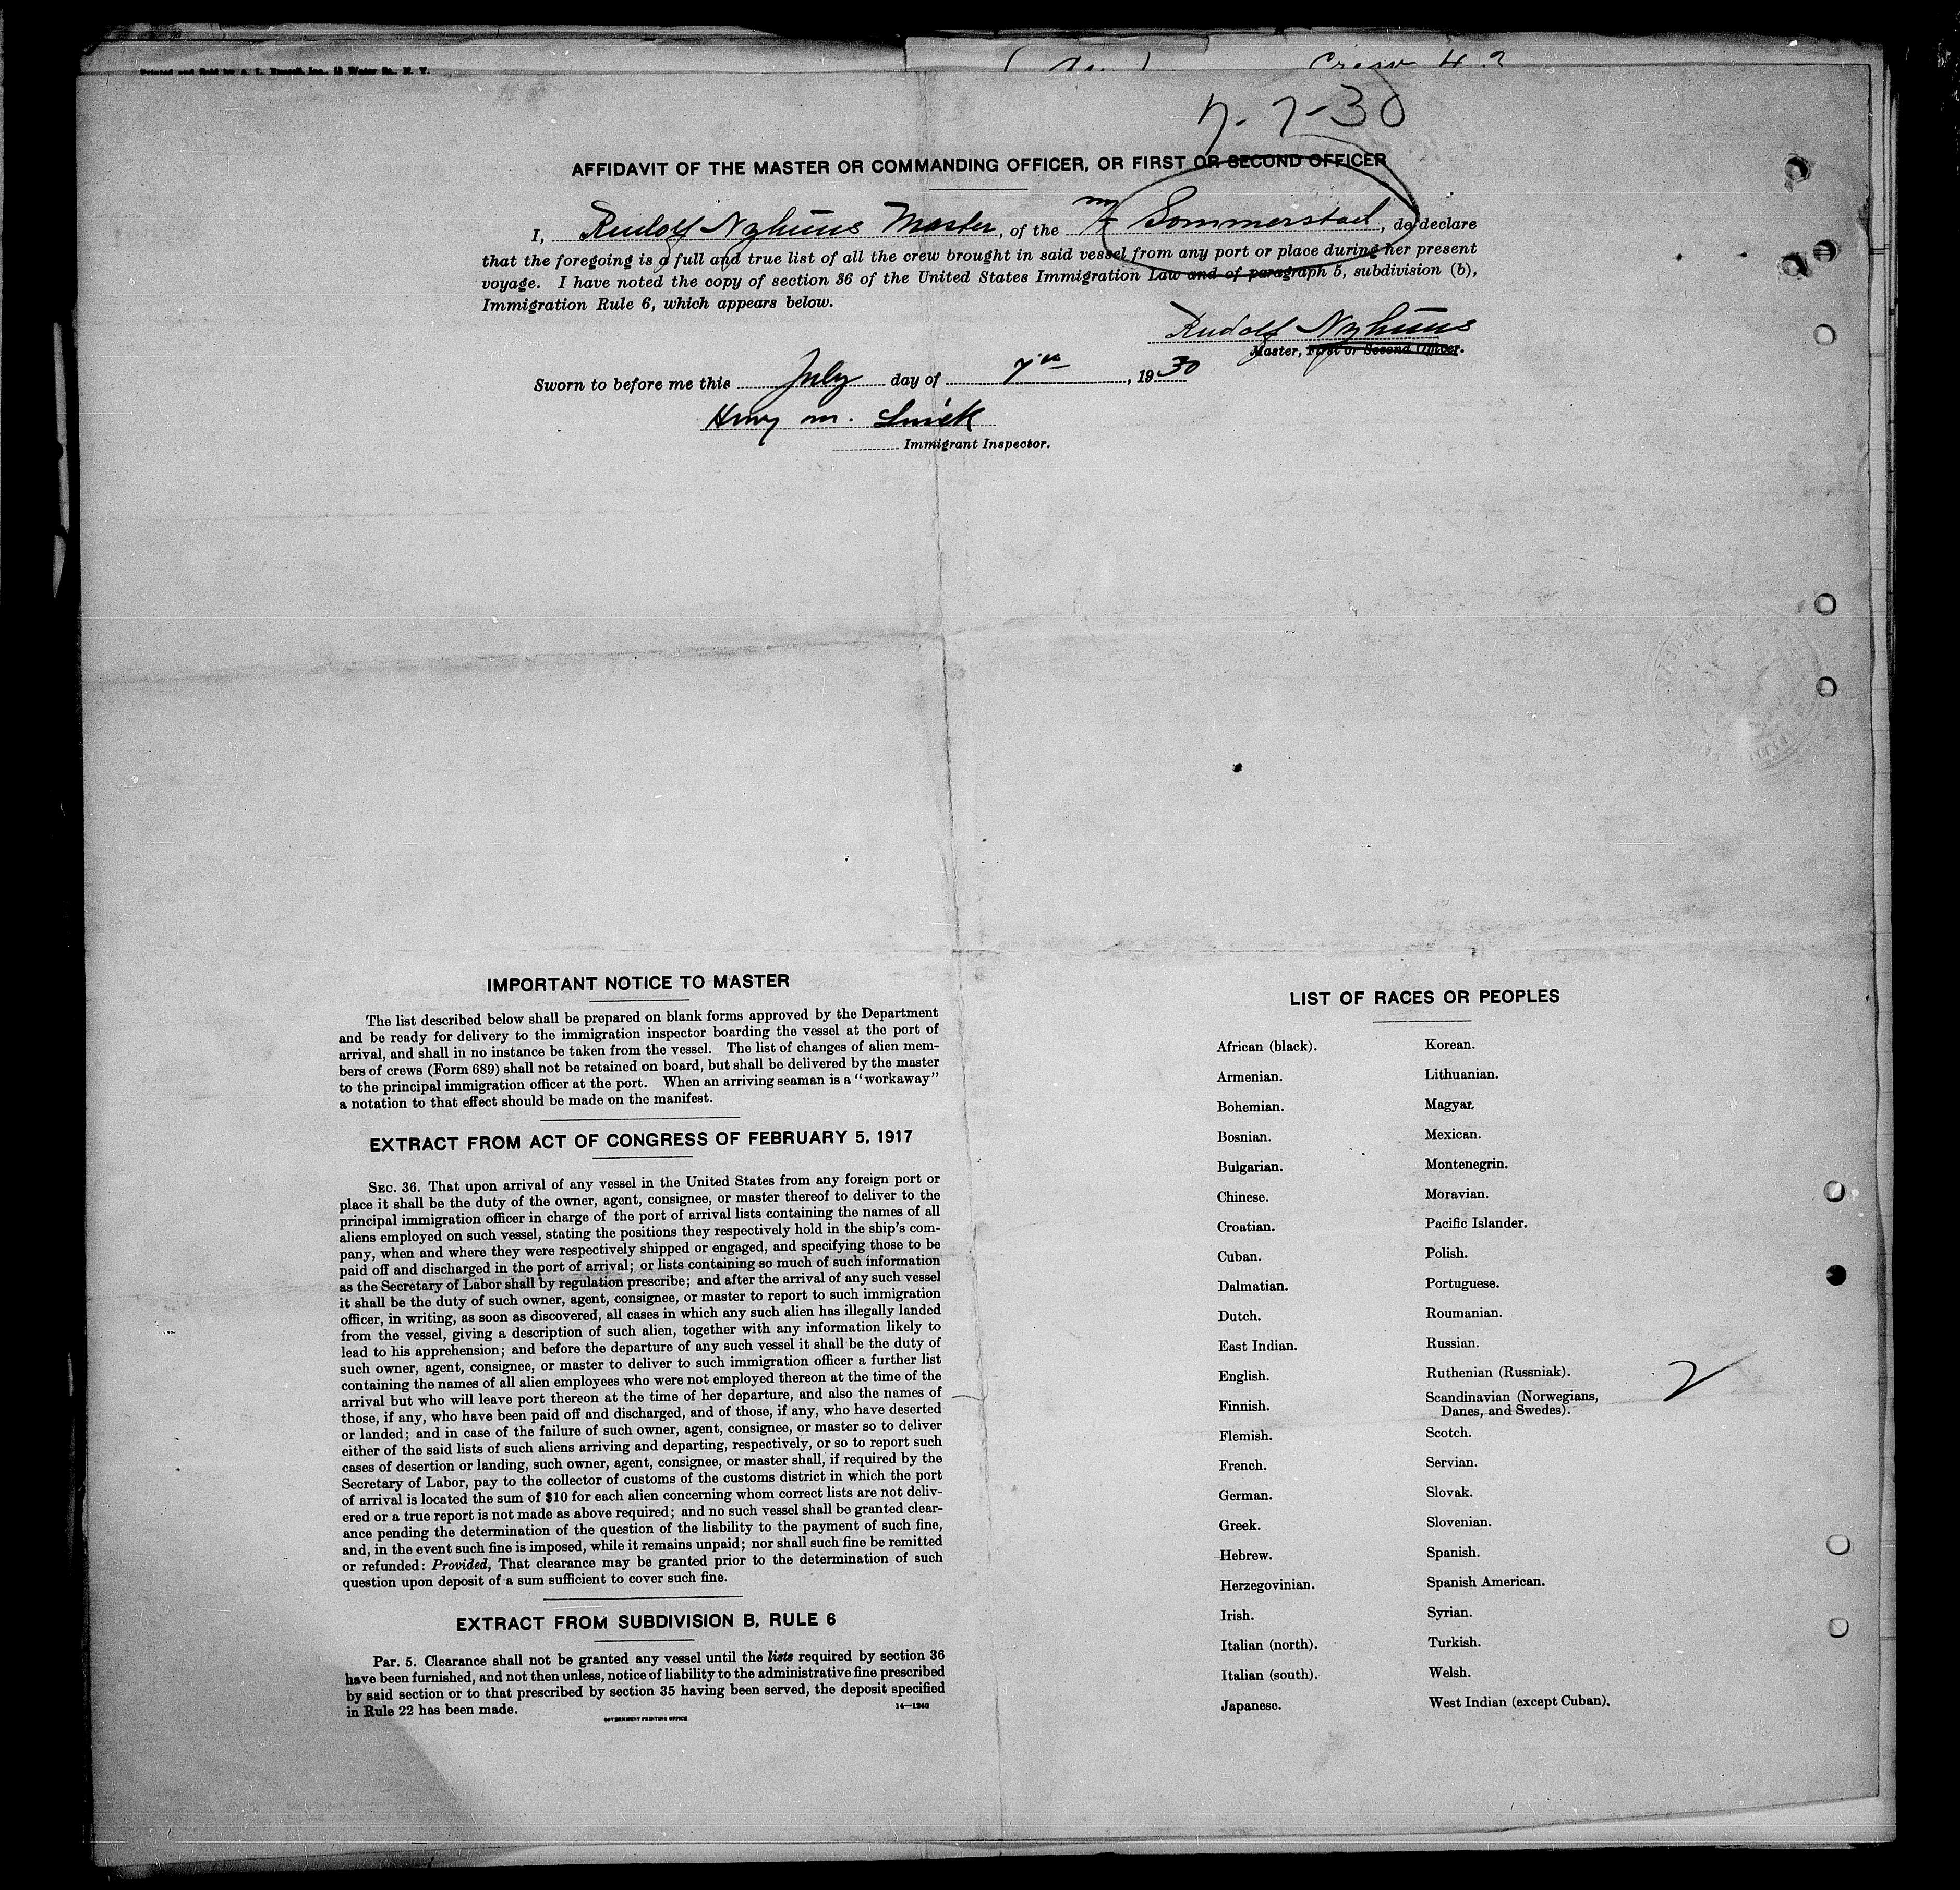 Printed and Sold by A. L. Russell, Inc., 13 Water St., N. Y.
Crew 42
7-7-30
AFFIDAVIT OF THE MASTER OR COMMANDING OFFICER, OR FIRST OR SECOND OFFICER
I, Rudolf Nyhuus Master, of the M/S Sommerstad, do declare
that the foregoing is a full and true list of all the crew brought in said vessel from any port or place during her present
voyage. I have noted the copy of section 36 of the United States Immigration Law and of paragraph 5, subdivision (b),
Immigration Rule 6, which appears below.
Rudolf Nyhuus
Master, First or Second Officer.
Sworn to before me this July day of 7th, 1930
Henry M.
Immigrant Inspector.
IMPORTANT NOTICE TO MASTER
The list described below shall be prepared on blank forms approved by the Department
and be ready for delivery to the immigration inspector boarding the vessel at the port of
arrival, and shall in no instance be taken from the vessel. The list of changes of alien mem-
bers of crews (Form 689) shall not be retained on board, but shall be delivered by the master
to the principal immigration officer at the port. When an arriving seaman is a "workaway"
a notation to that effect should be made on the manifest.
EXTRACT FROM ACT OF CONGRESS OF FEBRUARY 5, 1917
SEC. 36. That upon arrival of any vessel in the United States from any foreign port or
place it shall be the duty of the owner, agent, consignee, or master thereof to deliver to the
principal immigration officer in charge of the port of arrival lists containing the names of all
aliens employed on such vessel, stating the positions they respectively hold in the ship's com-
pany, when and where they were respectively shipped or engaged, and specifying those to be
paid off and discharged in the port of arrival; or lists containing so much of such information
as the Secretary of Labor shall by regulation prescribe; and after the arrival of any such vessel
it shall be the duty of such owner, agent, consignee, or master to report to such immigration
officer, in writing, as soon as discovered, all cases in which any such alien has illegally landed
from the vessel, giving a description of such alien, together with any information likely to
lead to his apprehension; and before the departure of any such vessel it shall be the duty of
such owner, agent, consignee, or master to deliver to such immigration officer a further list
containing the names of all alien employees who were not employed thereon at the time of the
arrival but who will leave port thereon at the time of her departure, and also the names of
those, if any, who have been paid off and discharged, and of those, if any, who have deserted
or landed; and in case of the failure of such owner, agent, consignee, or master so to deliver
either of the said lists of such aliens arriving and departing, respectively, or so to report such
cases of desertion or landing, such owner, agent, consignee, or master shall, if required by the
Secretary of Labor, pay to the collector of customs of the customs district in which the port
of arrival is located the sum of $10 for each alien concerning whom correct lists are not deliv-
ered or a true report is not made as above required; and no such vessel shall be granted clear-
ance pending the determination of the question of the liability to the payment of such fine,
and, in the event such fine is imposed, while it remains unpaid; nor shall such fine be remitted
or refunded: Provided, That clearance may be granted prior to the determination of such
question upon deposit of a sum sufficient to cover such fine.
EXTRACT FROM SUBDIVISION B, RULE 6
Par. 5. Clearance shall not be granted any vessel until the lists required by section 36
have been furnished, and not then unless, notice of liability to the administrative fine prescribed
by said section or to that prescribed by section 35 having been served, the deposit specified
in Rule 22 has been made.
14—1240
GOVERNMENT PRINTING OFFICE
LIST OF RACES OR PEOPLES
African (black).
Armenian.
Bohemian.
Bosnian.
Bulgarian.
Chinese.
Croatian.
Cuban.
Dalmatian.
Dutch.
East Indian.
English.
Finnish.
Flemish.
French.
German.
Greek.
Hebrew.
Herzegovinian.
Irish.
Italian (north).
Italian (south).
Japanese.
Korean.
Lithuanian.
Magyar.
Mexican.
Montenegrin.
Moravian.
Pacific Islander.
Polish.
Portuguese.
Roumanian.
Russian.
Ruthenian (Russniak).
Scandinavian (Norwegians,
Danes, and Swedes).
Scotch.
Servian.
Slovak.
Slovenian.
Spanish.
Spanish American.
Syrian.
Turkish.
Welsh.
West Indian (except Cuban).
2